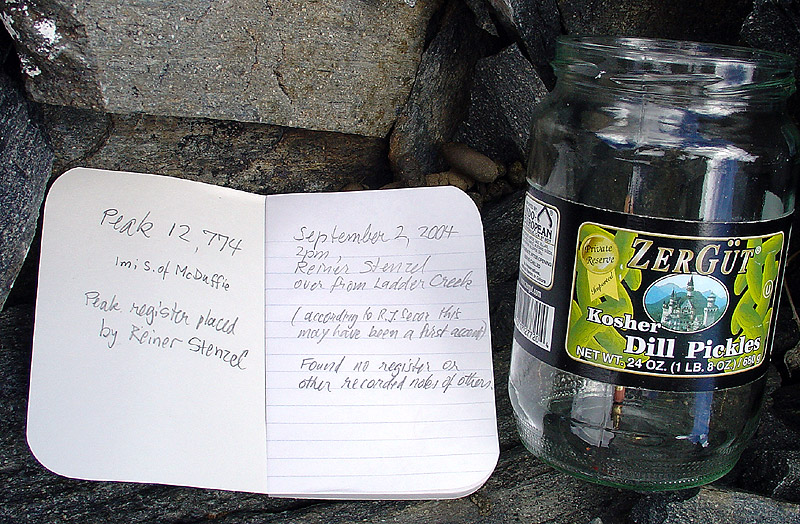 Peak 12,774
1 mi S. of McDuffie
Peak register placed
by Reiner Stenzel
September 2, 2004
2pm
Reiner Stenzel
over from Ladder Creek
(according to RJ Secor this
may have been a first ascent)
Found no register or
other recorded notes of others.
Private
Reserve
Imported
ZERGÜT
Kosher
Dill Pickles
NET WT. 24 OZ. (1 LB. 8 OZ.) / 680 g